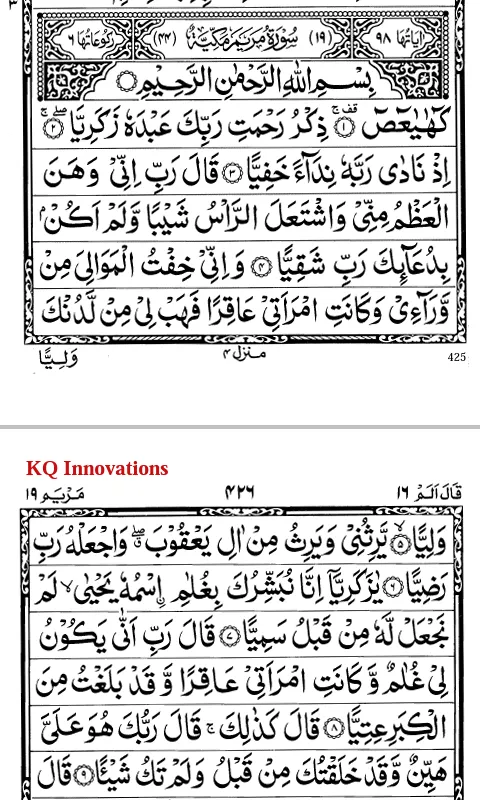 اٰیَاتُهَا ۹۸ (۱۹) سُوْرَةُ مَرْیَمَ مَكِّیَّةٌ (۴۴) رُكُوْعَاتُهَا ۶
بِسْمِ اللّٰهِ الرَّحْمٰنِ الرَّحِیْمِ
كٓهٰیٰعٓصٓ ۚ قف ﴿۱﴾ ذِكْرُ رَحْمَتِ رَبِّكَ عَبْدَهٗ زَكَرِیَّا ۖۚ ﴿۲﴾
اِذْ نَادٰی رَبَّهٗ نِدَآءً خَفِیًّا ﴿۳﴾ قَالَ رَبِّ اِنِّیْ وَهَنَ
الْعَظْمُ مِنِّیْ وَاشْتَعَلَ الرَّاْسُ شَیْبًا وَّلَمْ اَكُنْۢ
بِدُعَآئِكَ رَبِّ شَقِیًّا ﴿۴﴾ وَاِنِّیْ خِفْتُ الْمَوَالِیَ مِنْ
وَّرَآءِیْ وَكَانَتِ امْرَاَتِیْ عَاقِرًا فَهَبْ لِیْ مِنْ لَّدُنْكَ
وَلِیًّا منزل ۴ 425
KQ Innovations
قَالَ اَلَمْ ۱۶ ۴۲۶ مَرْیَم ۱۹
وَلِیًّا ۙ ﴿۵﴾ یَّرِثُنِیْ وَیَرِثُ مِنْ اٰلِ یَعْقُوْبَ ۖ ق وَاجْعَلْهُ رَبِّ
رَضِیًّا ﴿۶﴾ یٰزَكَرِیَّآ اِنَّا نُبَشِّرُكَ بِغُلٰمِ ۣاسْمُهٗ یَحْیٰی ۙ لَمْ
نَجْعَلْ لَّهٗ مِنْ قَبْلُ سَمِیًّا ﴿۷﴾ قَالَ رَبِّ اَنّٰی یَكُوْنُ
لِیْ غُلٰمٌ وَّكَانَتِ امْرَاَتِیْ عَاقِرًا وَّقَدْ بَلَغْتُ مِنَ
الْكِبَرِ عِتِیًّا ﴿۸﴾ قَالَ كَذٰلِكَ ۚ قَالَ رَبُّكَ هُوَ عَلَیَّ
هَیِّنٌ وَّقَدْ خَلَقْتُكَ مِنْ قَبْلُ وَلَمْ تَكُ شَیْئًا ﴿۹﴾ قَالَ